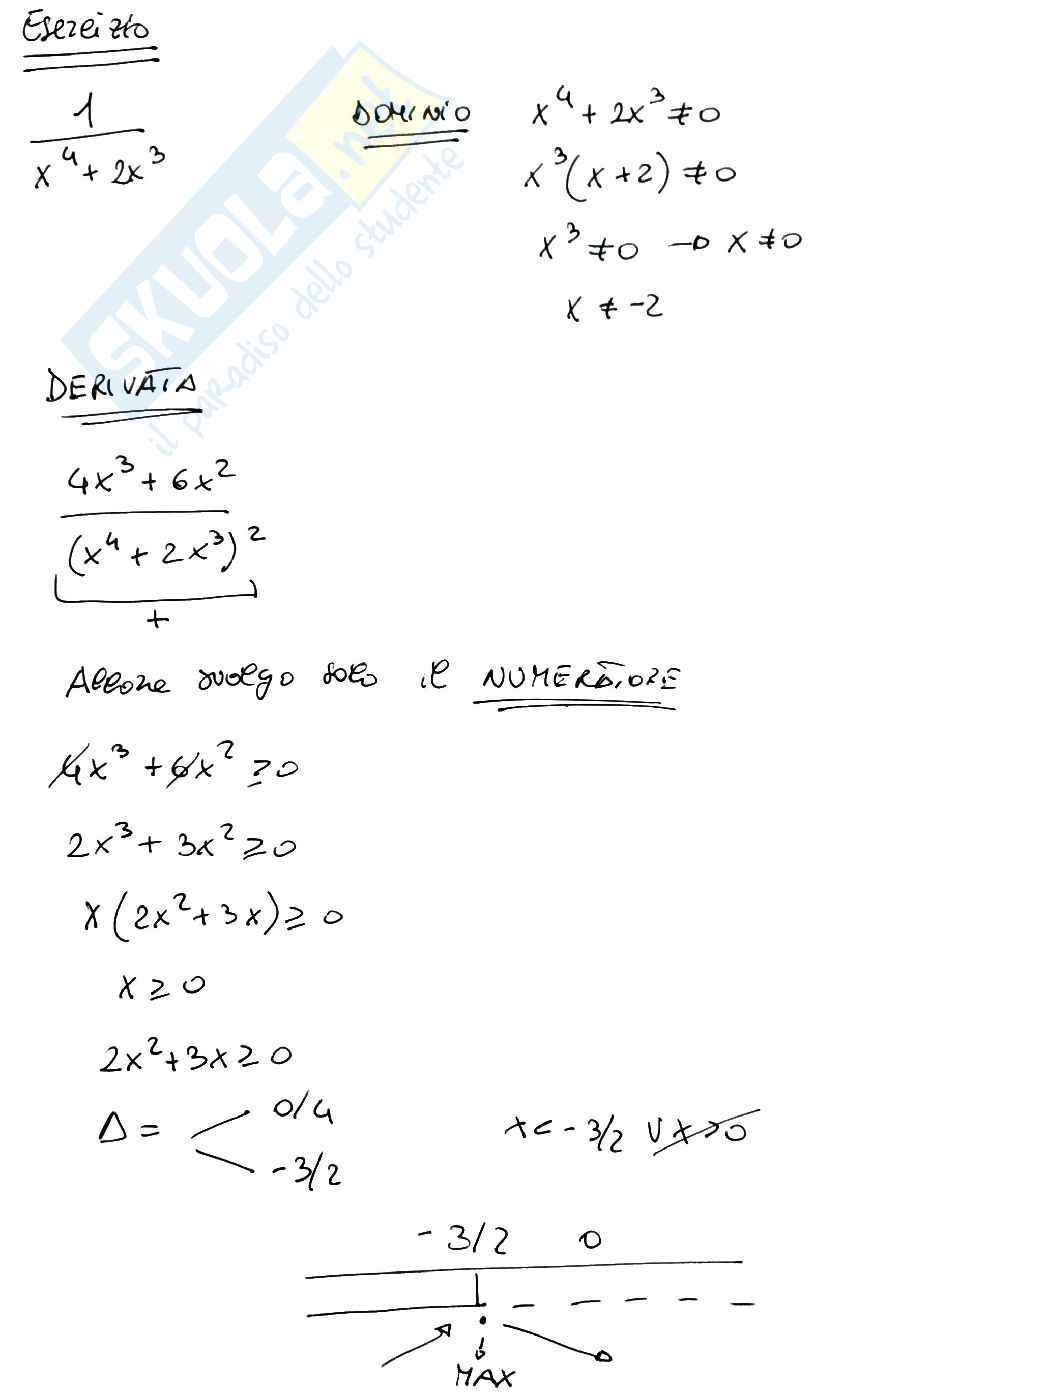 Esercizio
1
x⁴ + 2x³
DOMINIO x⁴ + 2x³ ≠ 0
x³(x + 2) ≠ 0
x³ ≠ 0 → x ≠ 0
x ≠ -2
SKUOLA.net
il paradiso dello studente
DERIVATA
4x³ + 6x²
(x⁴ + 2x³)²
+
Allora svolgo solo il NUMERATORE
4x³ + 6x² ≥ 0
2x³ + 3x² ≥ 0
x(2x² + 3x) ≥ 0
x ≥ 0
2x² + 3x ≥ 0
Δ = 0/4
-3/2
x < -3/2 ∨ x > 0
-3/2 0
MAX